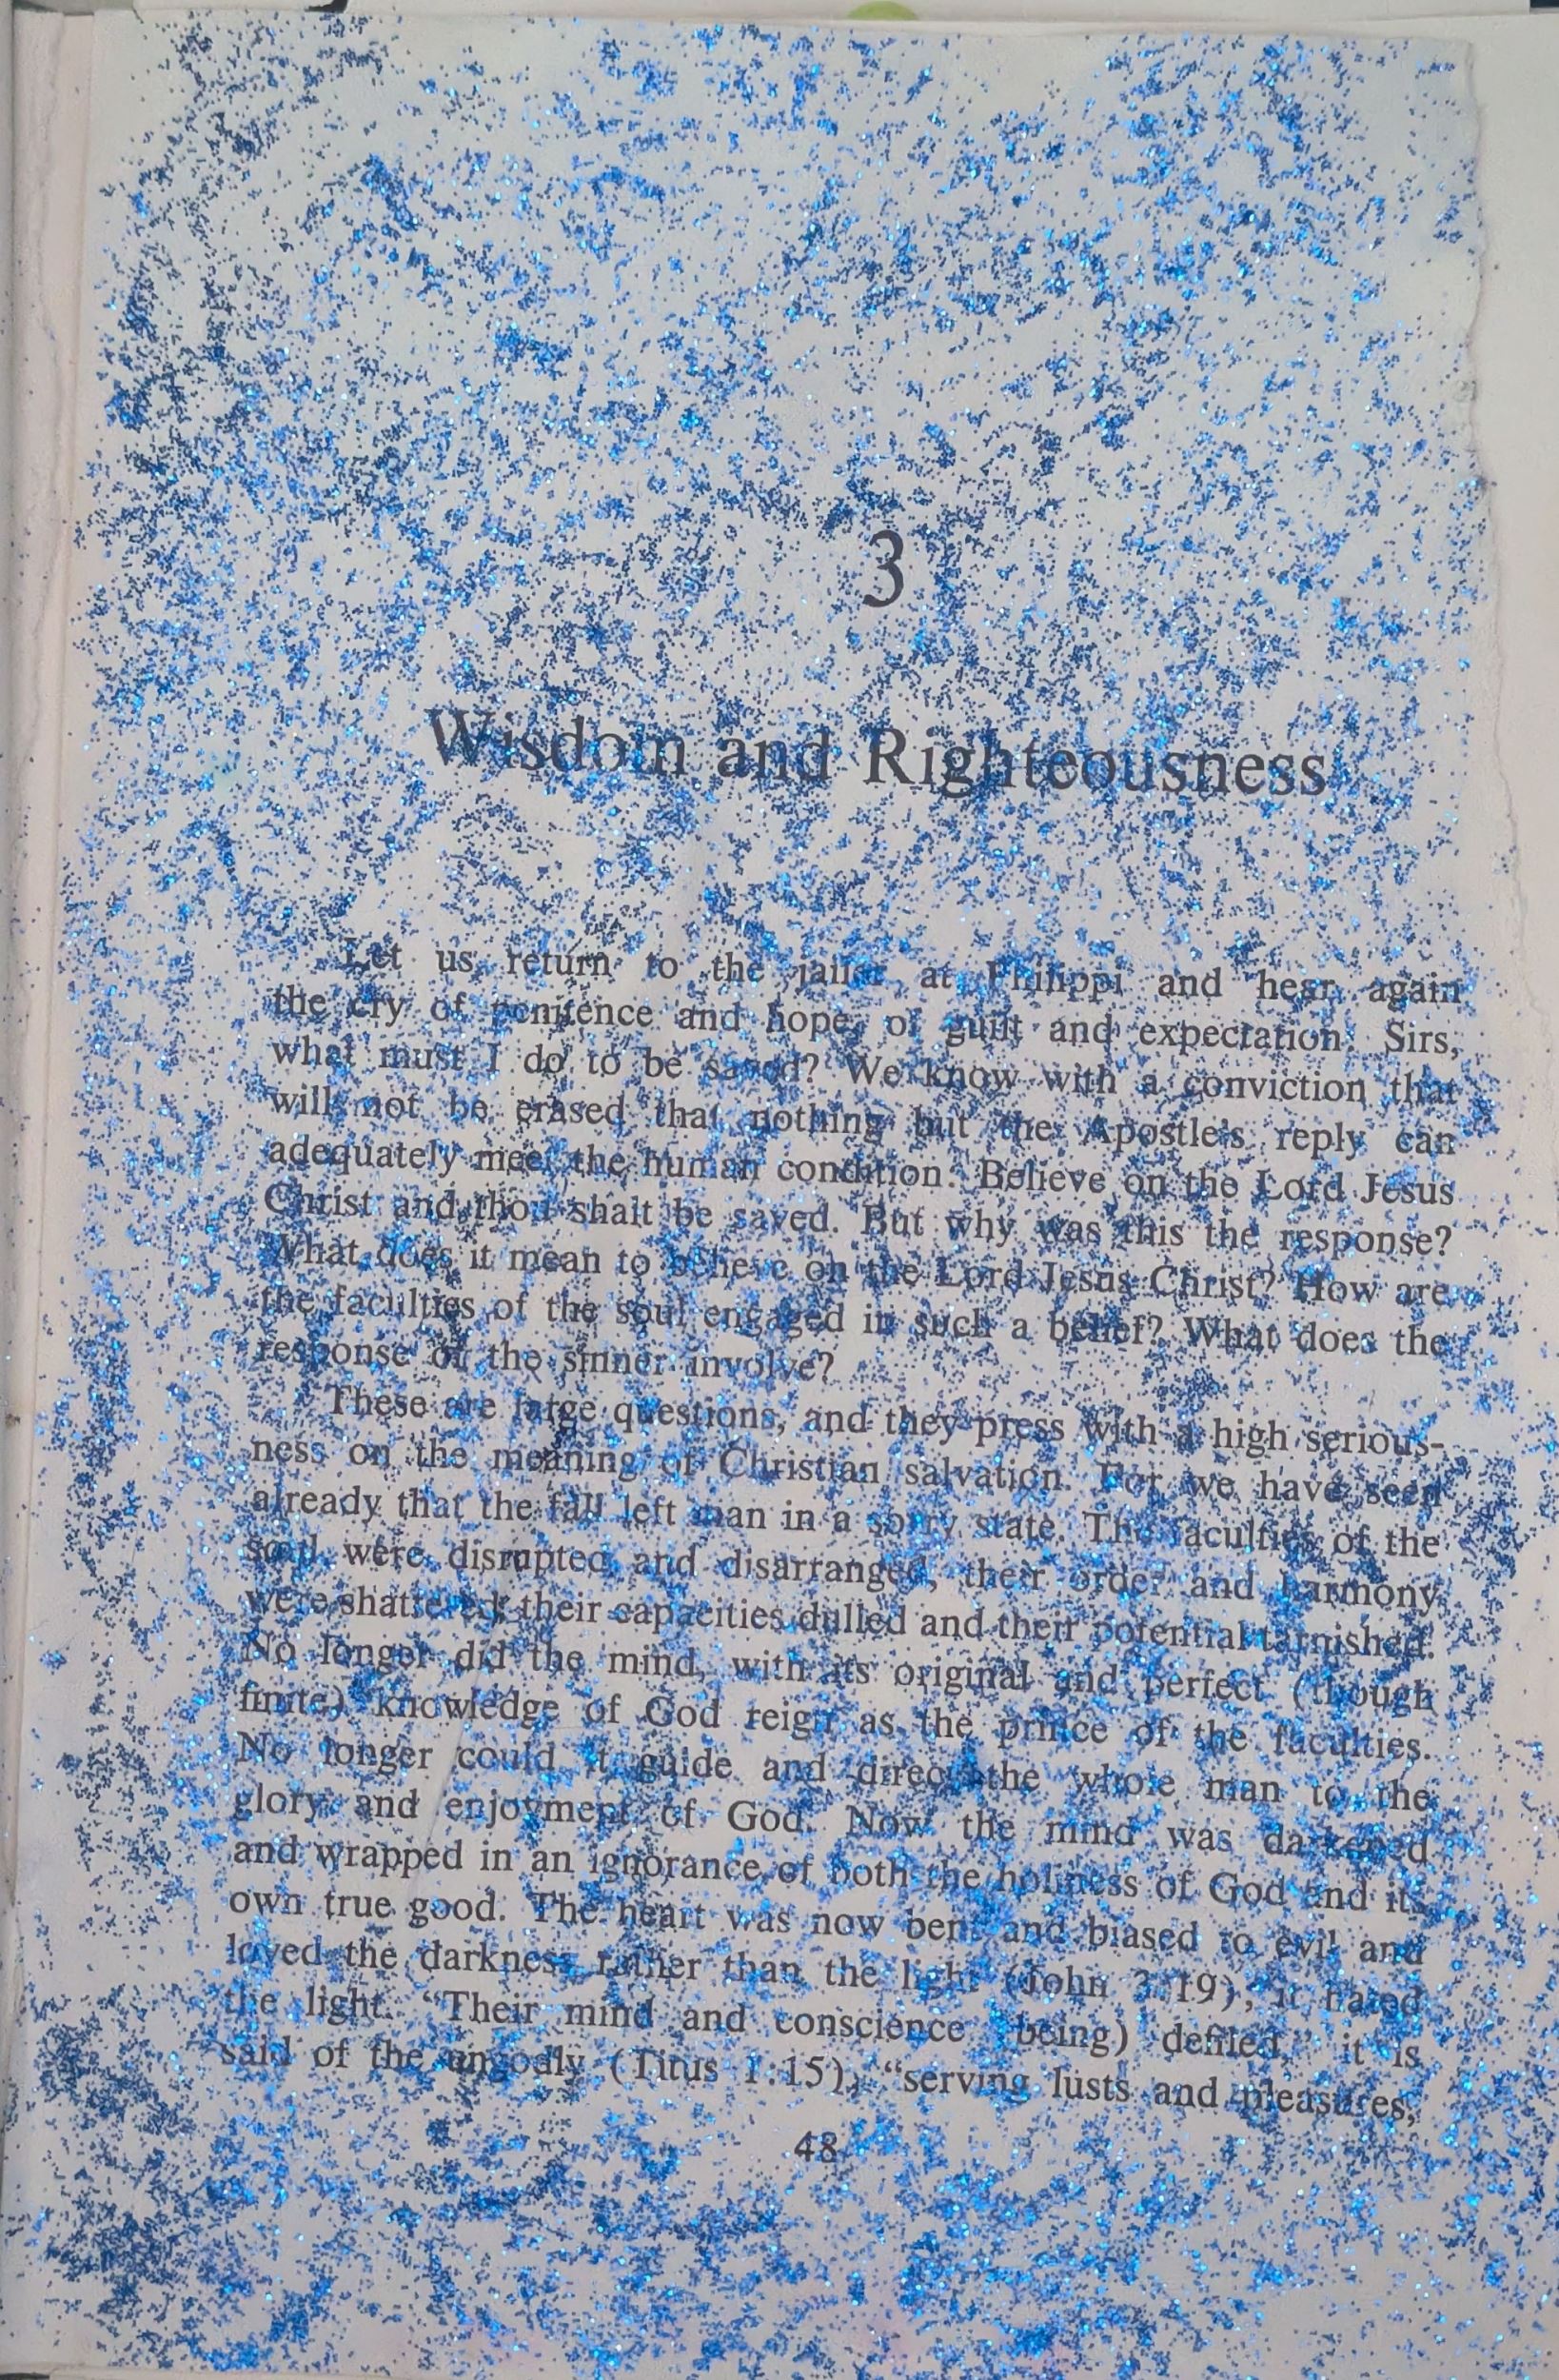 3
Wisdom and Righteousness
Let us return to the jailer at Philippi and hear again
the cry of penitence and hope, of guilt and expectation. Sirs,
what must I do to be saved? We know with a conviction that
will not be erased that nothing but the Apostle's reply can
adequately meet the human condition. Believe on the Lord Jesus
Christ and thou shalt be saved. But why was this the response?
What does it mean to believe on the Lord Jesus Christ? How are
the faculties of the soul engaged in such a belief? What does the
response of the sinner involve?
These are large questions, and they press with a high serious-
ness on the meaning of Christian salvation. For we have seen
already that the fall left man in a sorry state. The faculties of the
soul were disrupted and disarranged, their order and harmony
were shattered, their capacities dulled and their potential tarnished.
No longer did the mind, with its original and perfect (though
finite) knowledge of God reign as the prince of the faculties.
No longer could it guide and direct the whole man to the
glory and enjoyment of God. Now the mind was darkened
and wrapped in an ignorance of both the holiness of God and its
own true good. The heart was now bent and biased to evil and
loved the darkness rather than the light (John 3:19); it hated
the light. “Their mind and conscience (being) defiled,” it is
said of the ungodly (Titus 1:15), “serving lusts and pleasures,
48